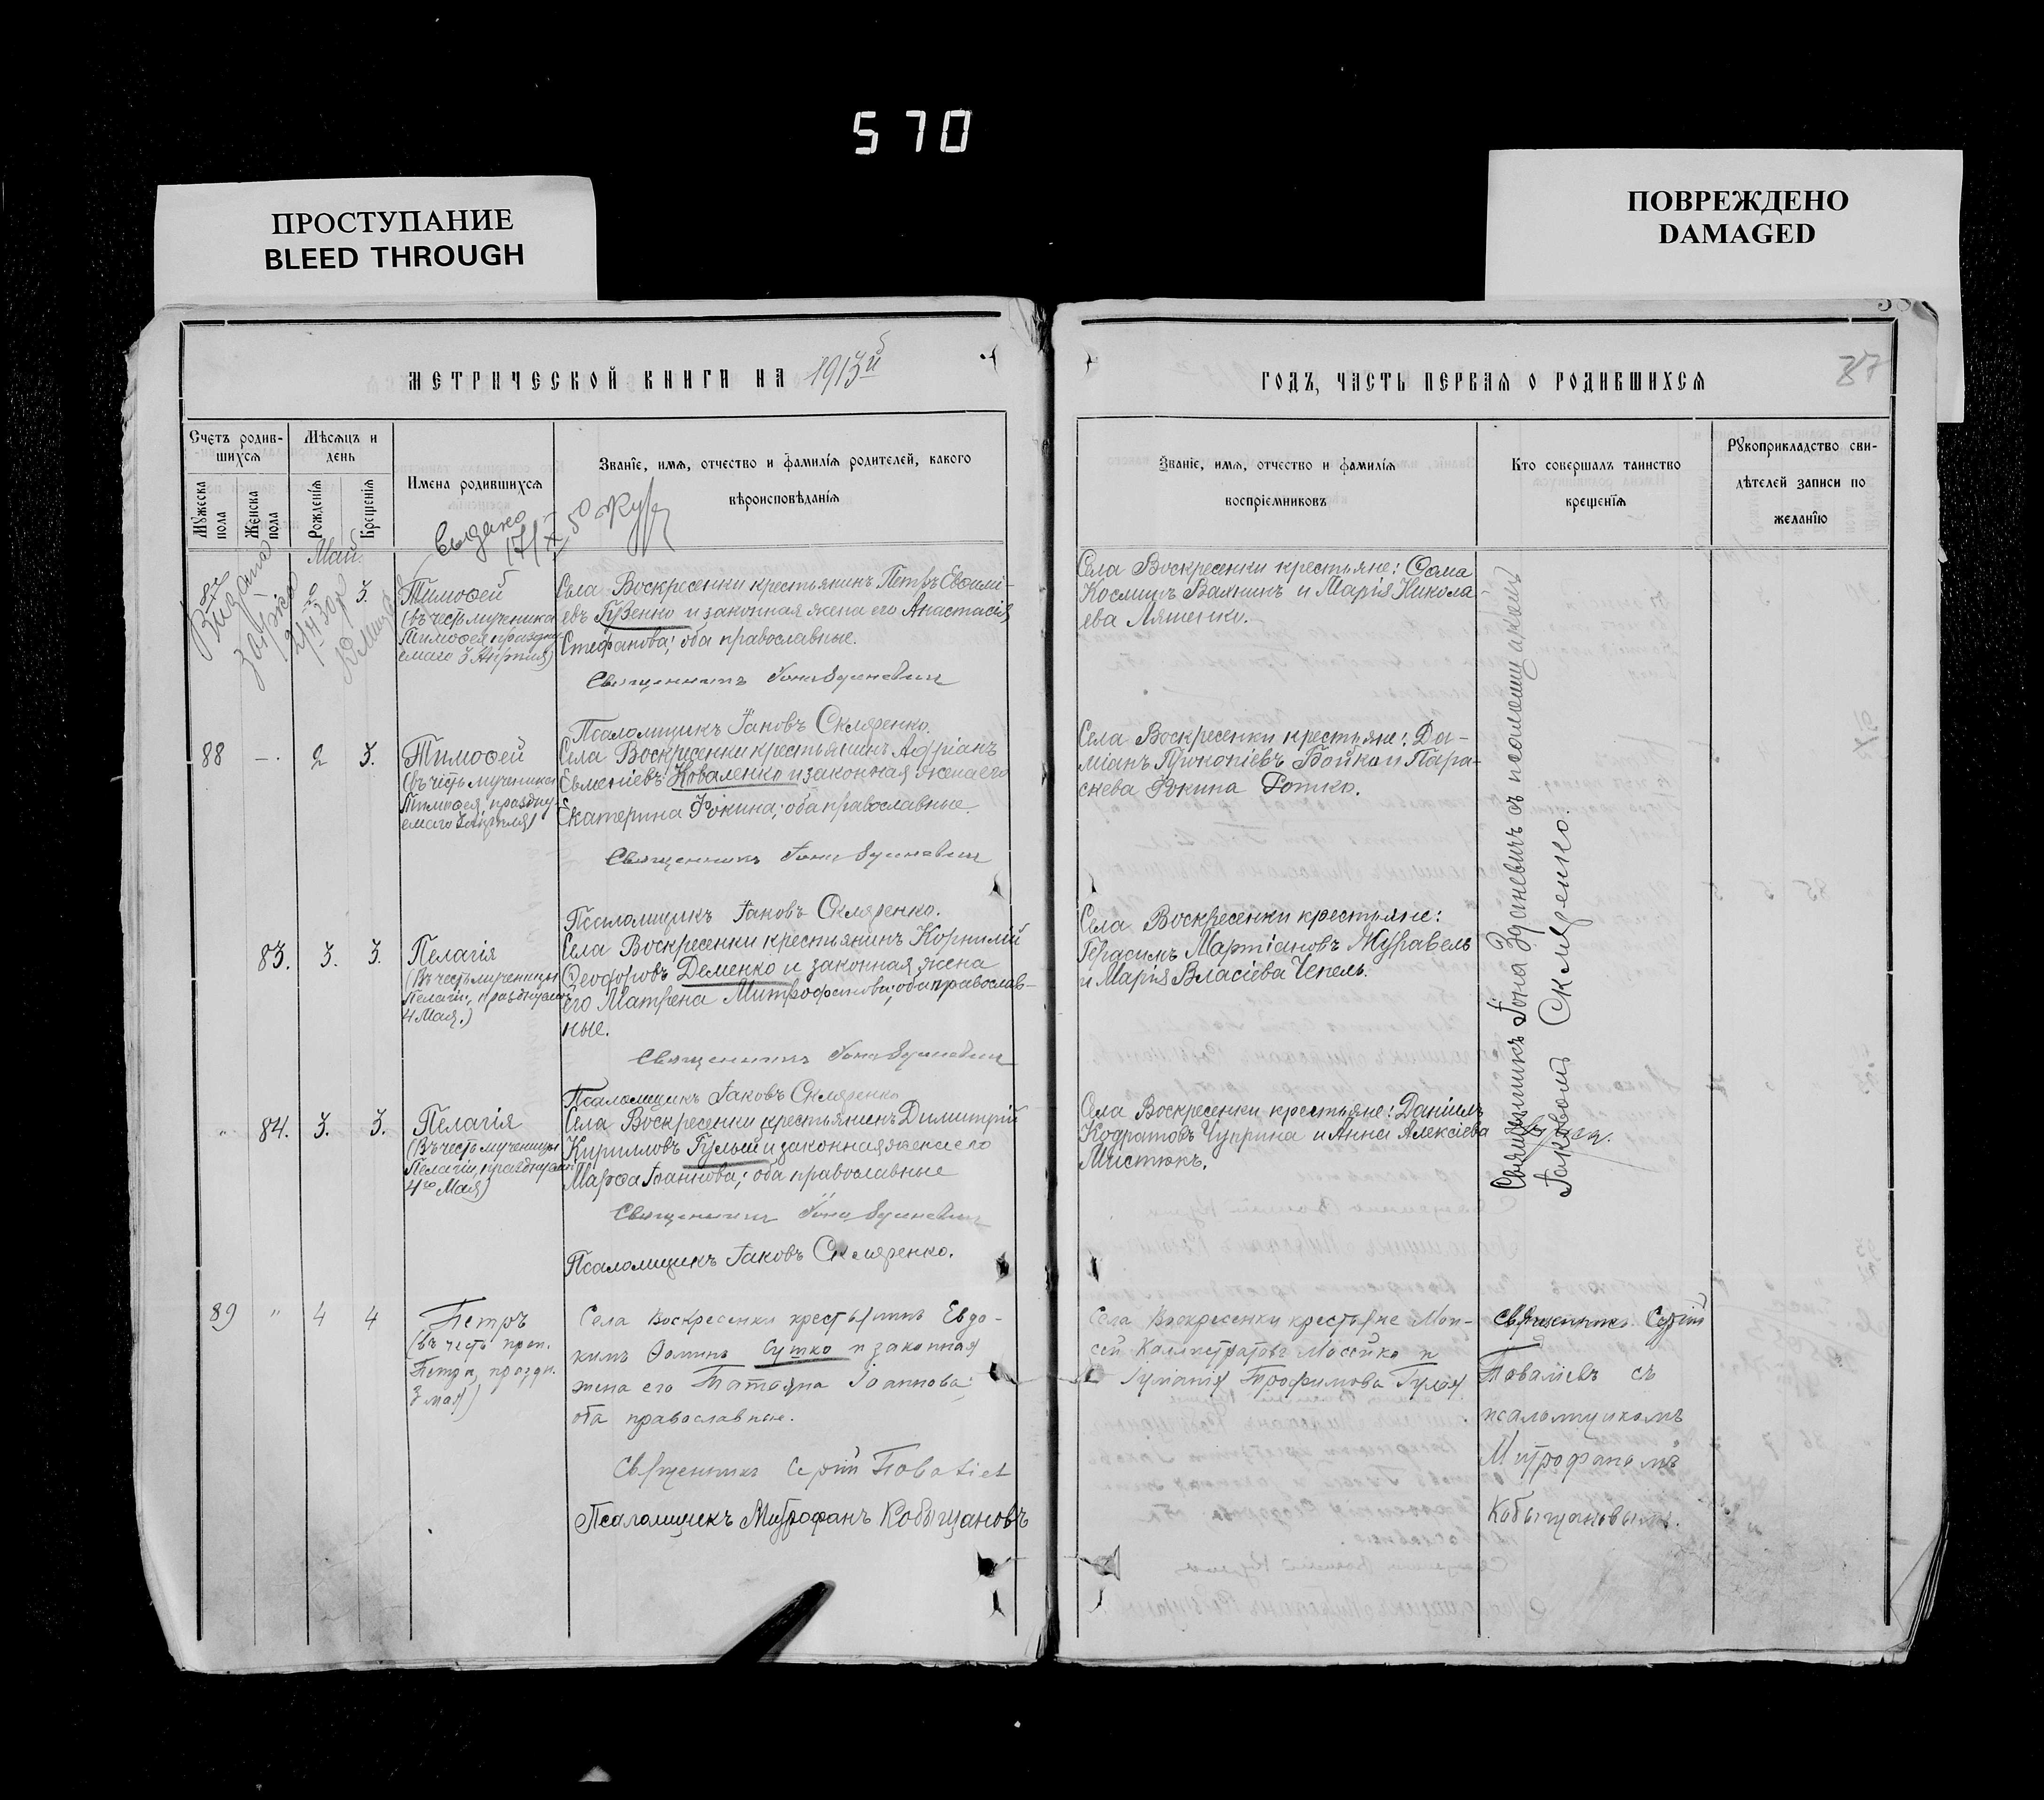 570
ПРОСТУПАНИЕ
BLEED THROUGH
ПОВРЕЖДЕНО
DAMAGED
МЕТРИЧЕСКОЙ КНИГИ НА 1913й
Счетъ родив-
шихся
Мѣсяцъ и
день
Мужеска
пола
Женска
пола
Рожденія
Крещенія
Имена родившихся
Званіе, имя, отчество и фамилія родителей, какого
вѣроисповѣданія
Май
Видана
87
2
3.
Тимофей
(въ честь мученика
Тимофея праздну-
емаго 3 Апреля)
Села Воскресенки крестьянинъ Петръ Евфимі-
евъ Гузенко и законная жена его Анастасія
Стефанова; оба православные.
Священникъ Іона Зданевичъ
Псаломщикъ Іаковъ Скляренко.
88
2
3.
Тимофей
(въ честь мученика
Тимофея, праздну-
емаго 3 Апреля)
Села Воскресенки крестьянинъ Адріанъ
Евменіевъ Коваленко и законная жена его
Екатерина Фокина; оба православные.
Священникъ Іона Зданевичъ
Псаломщикъ Іаковъ Скляренко.
83.
3.
3.
Пелагія
(Въ честь мученицы
Пелагіи, празднуем.
4 Мая.)
Села Воскресенки крестьянинъ Корнилій
Ѳеодоровъ Деменко и законная жена
его Матрена Митрофанова; оба православ-
ные.
Священникъ Іона Зданевичъ
Псаломщикъ Іаковъ Скляренко
84.
3.
3.
Пелагія
(Въ честь мученицы
Пелагіи, празднуем.
4го Мая)
Села Воскресенки крестьянинъ Димитрій
Кирилловъ Гулый и законная жена его
Марфа Іоаннова; оба православные
Священникъ Іона Зданевичъ
Псаломщикъ Іаковъ Скляренко.
89
"
4
4
Петръ
(въ честь преп.
Петра, праздн.
3 мая)
Села Воскресенки крестьянинъ Евдо-
кимъ Фоминъ Сушко и законная
жена его Татіана Іоаннова;
оба православные.
Священникъ Сергій
Псаломщикъ Митрофанъ Кобыщановъ
ГОДЪ, ЧАСТЬ ПЕРВАЯ О РОДИВШИХСЯ
Званіе, имя, отчество и фамилія
воспріемниковъ
Кто совершалъ таинство
крещенія
Рукоприкладство сви-
дѣтелей записи по
желанію
Села Воскресенки крестьяне: Фома
Косминъ и Марія Никола-
ева Ляшенко.
Села Воскресенки крестьяне: Да-
міанъ Прокопіевъ Бойко и Пара-
скева Фокина
Села Воскресенки крестьяне:
Герасимъ Мартіановъ Журавель
и Марія Власіева Чепель.
Села Воскресенки крестьяне: Даніилъ
Кодратовъ Чуприна и Анна Алексіева
Мистюкъ.
Села Воскресенки крестьяне Мои-
сей Каллистратовъ Мосейко и
Іуліанія Трофимова Гулая
Священникъ Іона Зданевичъ съ псаломщикомъ
Іаковомъ Скляренко.
Священникъ Сергій
съ
псаломщикомъ
Митрофаномъ
Кобыщановымъ.